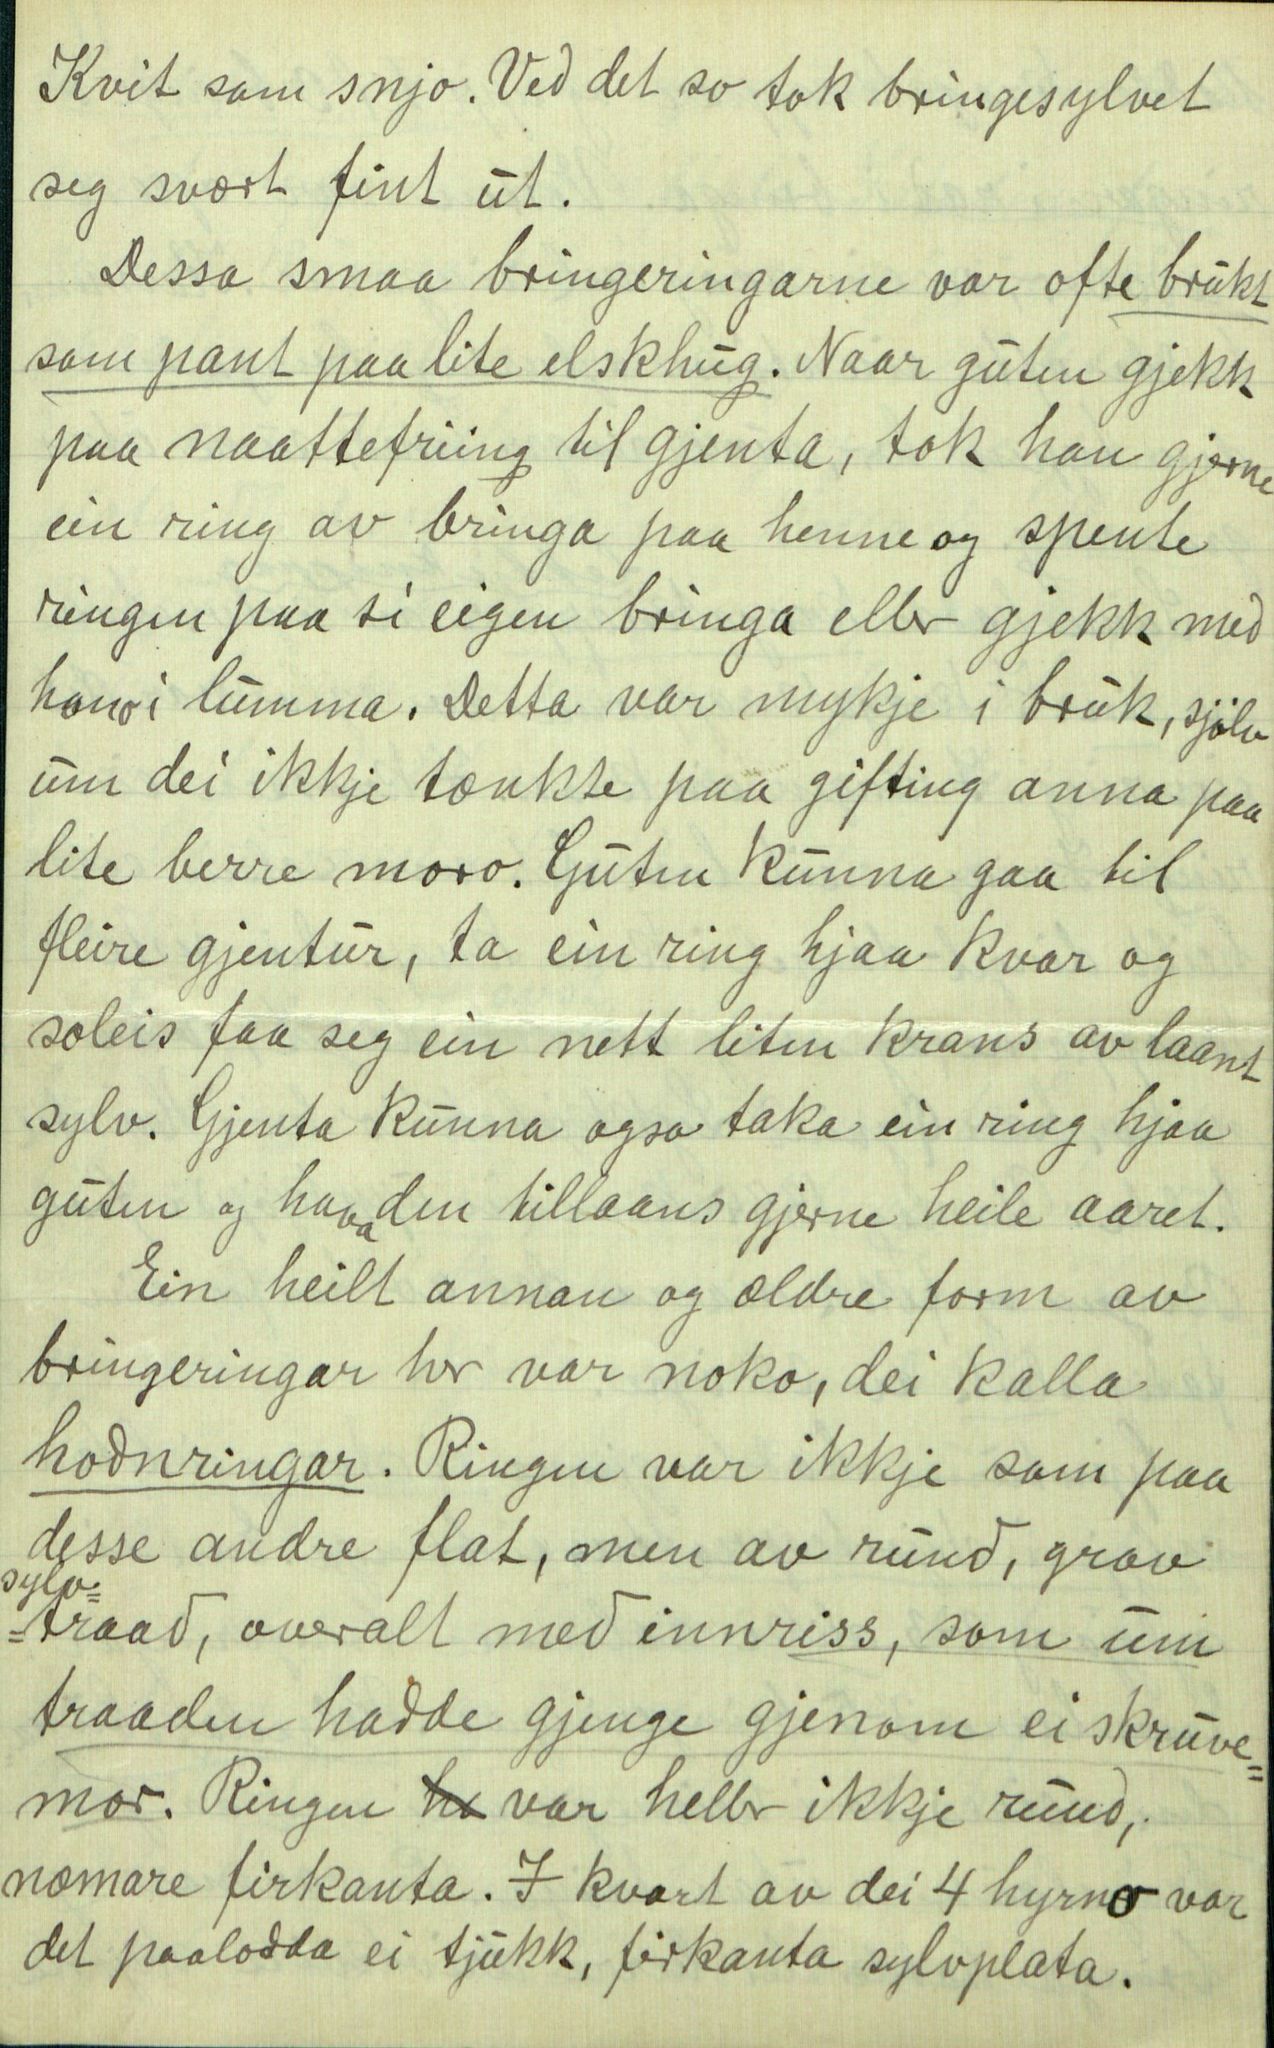 Kvit som snjo. Ved det so tok bringesylvet
seg svært fint ut.
Dessa smaa bringeringarne var ofte brukt
som pant paa lite elskhug. Naar guten gjekk
paa naattefriing til gjenta, tok han gjerne
ein ring av bringa paa henne og spente
ringen paa si eigen bringa eller gjekk med
hono i lumma. Detta var mykje i bruk, sjölv
um dei ikkje tænkte paa gifting anna paa
lite berre moro. Guten kunna gaa til
fleire gjentur, ta ein ring hjaa kvar og
soleis faa seg ein nett liten krans av laant
sylv. Gjenta kunna ogso taka ein ring hjaa
guten og hava den tillaans gjerne heile aaret.
Ein heilt annan og ældre form av
bringeringar her var noko, dei kalla
hodnringar. Ringen var ikkje som paa
desse andre flat, men av rund, grov
sylv=
=traad, overalt med innriss, som um
traaden hadde gjenge gjenom ei skruve=
mor. Ringen ha var heller ikkje rund,
næmare firkanta. I kvart av dei 4 hyrno var
det paalodda ei tjukk, firkanta sylvplata.